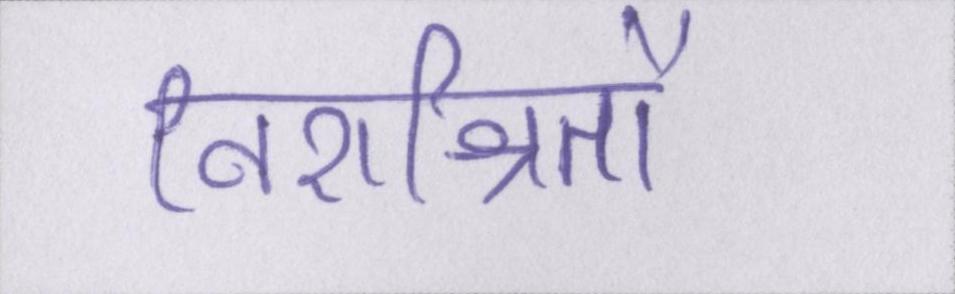 निराश्रितों